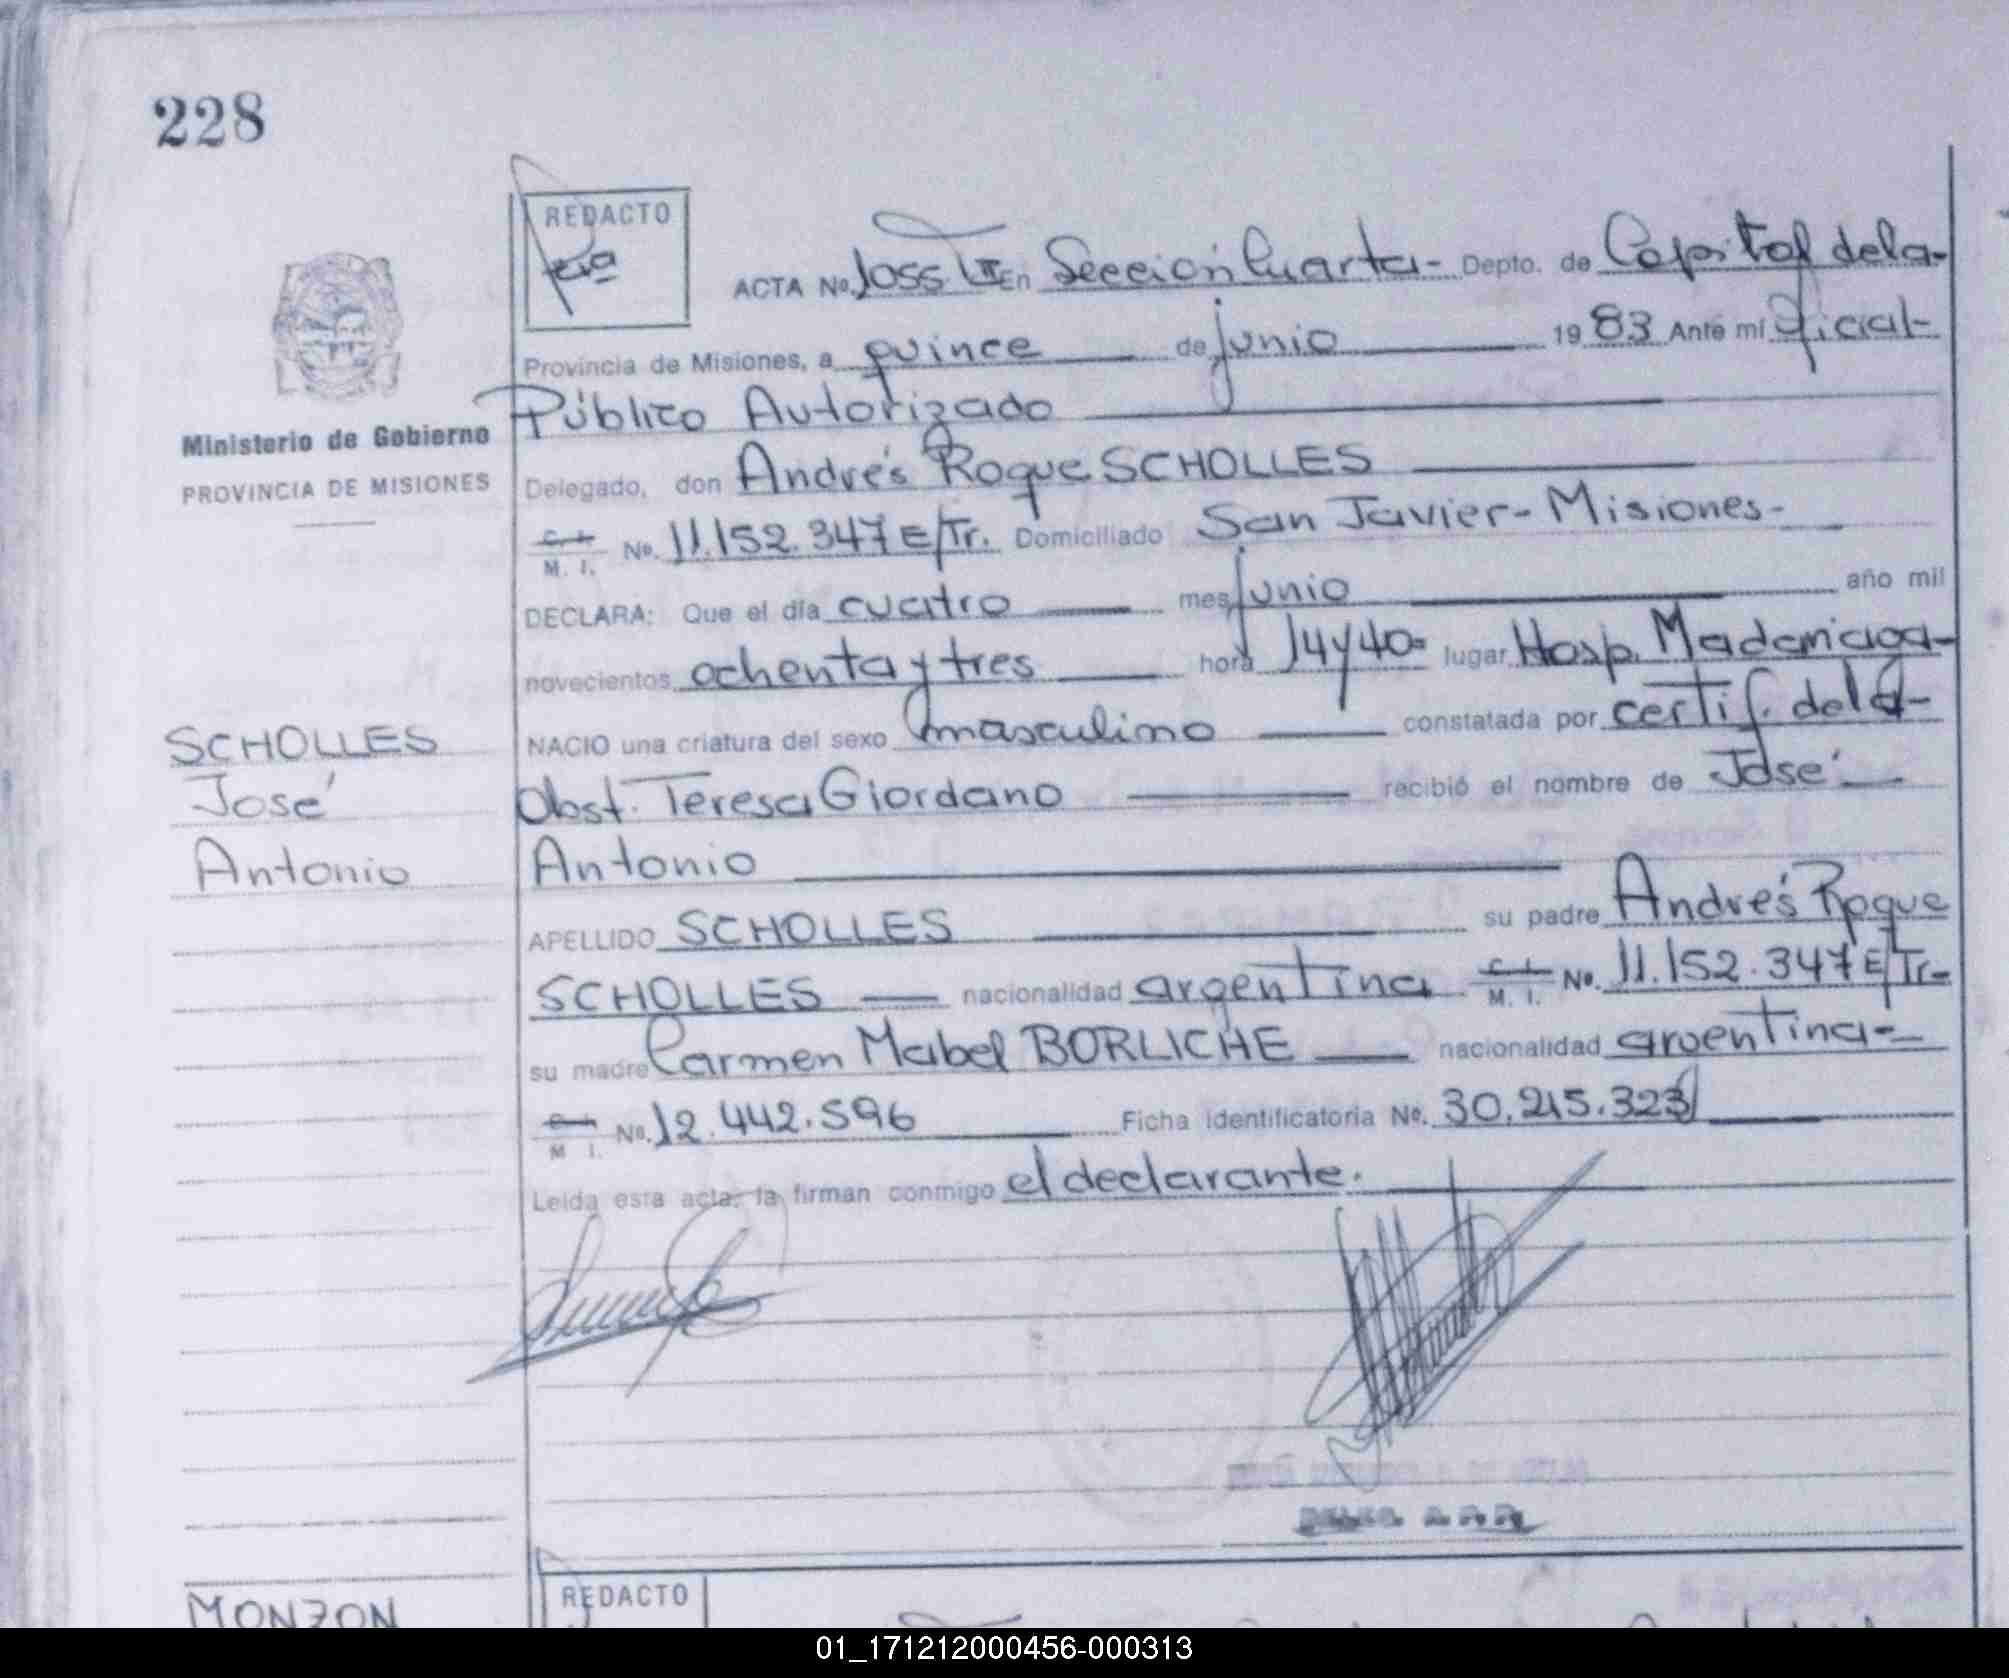 228
REDACTO
ACTA No. 1055 En Sección Cuarta- Depto. de Capital dela-
Provincia de Misiones, a quince de junio 1983 Ante mí Oficial-
Público Autorizado
Ministerio de Gobierno
PROVINCIA DE MISIONES
Delegado, don Andrés Roque SCHOLLES
C. I. M. I. No. 11.152.347 E/Tr. Domiciliado San Javier- Misiones-
DECLARA: Que el día cuatro mes junio año mil
novecientos ochenta y tres hora 14y40= lugar Hosp. Madariaga-
NACIO una criatura del sexo masculino constatada por certif. del
SCHOLLES
José
Antonio
Obst. Teresa Giordano recibió el nombre de José
Antonio
APELLIDO SCHOLLES su padre Andrés Roque
SCHOLLES nacionalidad argentina C. I. M. I. No. 11.152.347 E/Tr-
su madre Carmen Mabel BORLICHE nacionalidad argentina-
M. I. No. 12.442.596 Ficha identificatoria No. 30.215.323
Leída esta acta, la firman conmigo el declarante.
MONZON
REDACTO
01_171212000456-000313